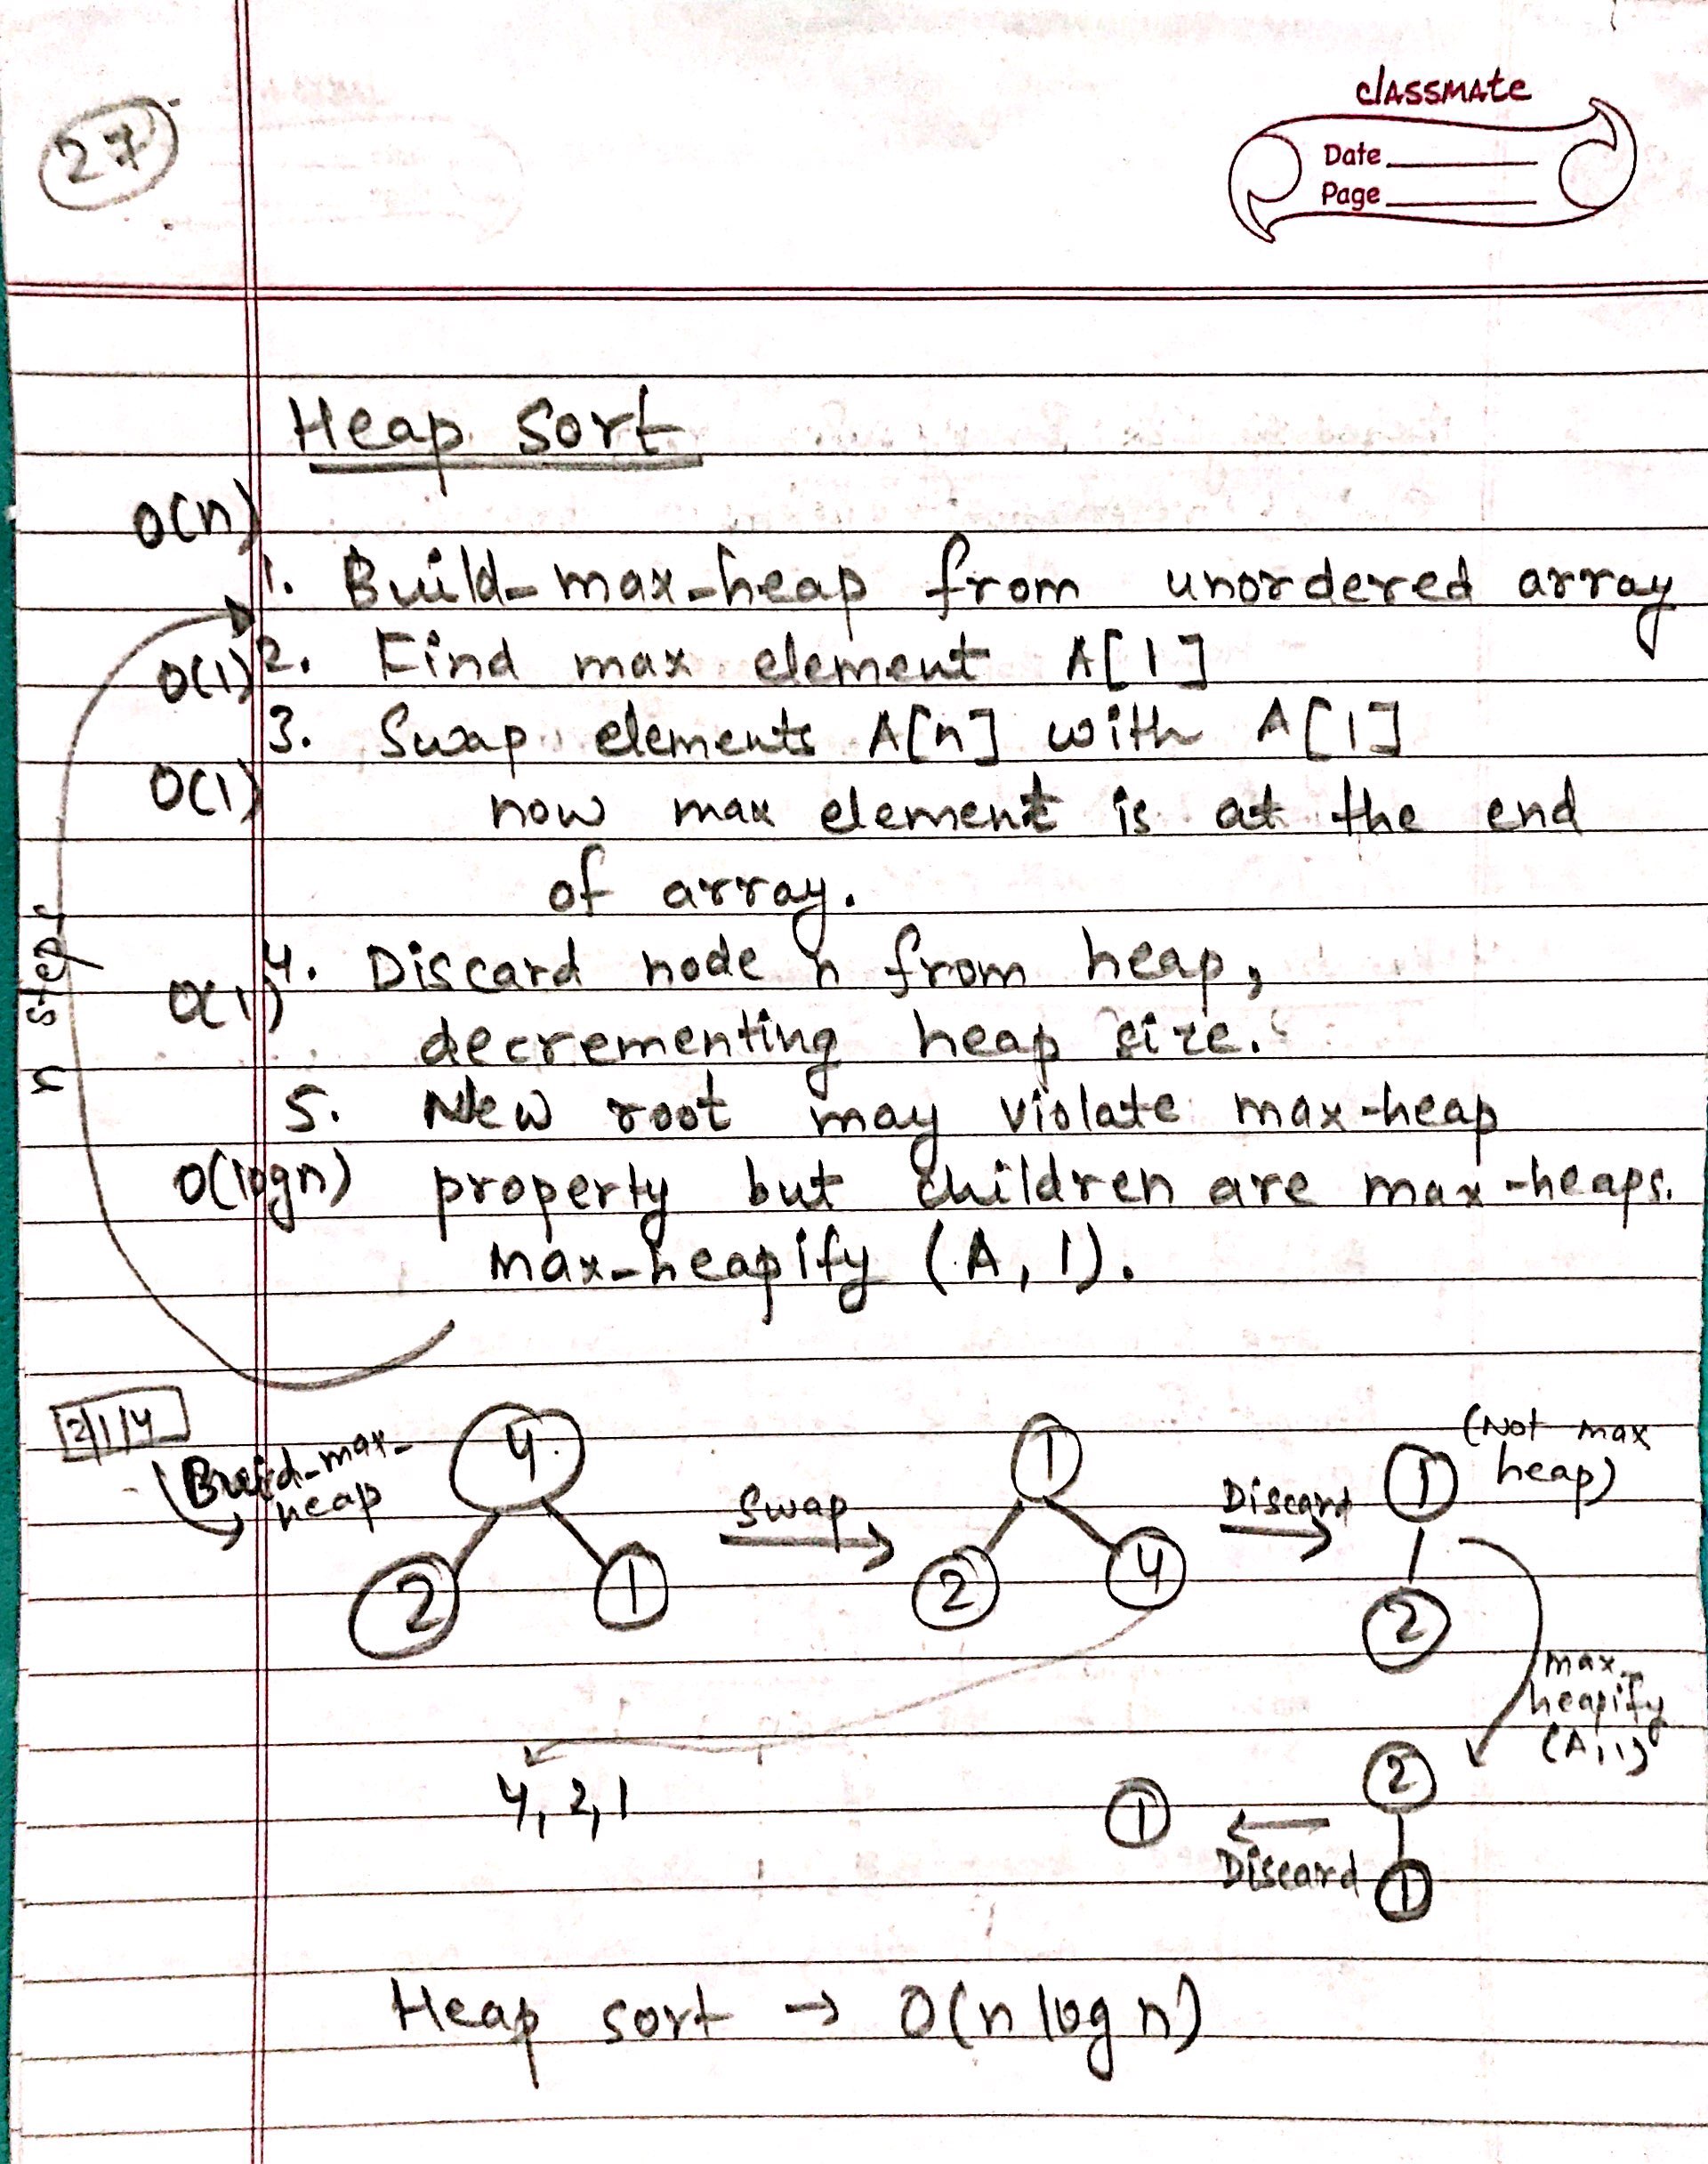 27
classmate
Date
Page
Heap sort
O(n)
1. Build-max-heap from unordered array
O(1) 2. Find max element A[1]
3. Swap elements A[n] with A[1]
O(1)
now max element is at the end
of array.
4. Discard node n from heap,
O(1)
decrementing heap size.
5. New root may violate max-heap
O(logn) property but children are max-heaps.
max-heapify (A, 1).
n steps
2|1|4
Build-max-
heap
4
2
1
Swap
1
2
4
Discard
1
2
(Not max
heap)
max-
heapify
(A,1)
2
1
Discard
1
4, 2, 1
Heap sort → O(n log n)